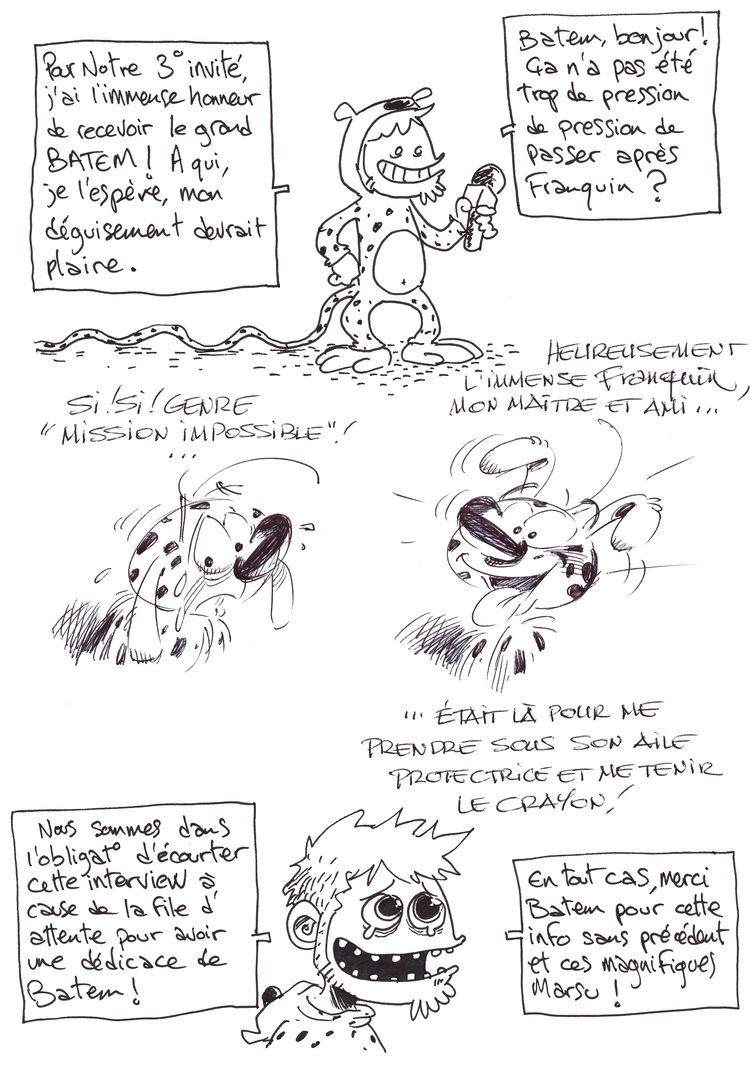 Pour Notre 3° invité,
j'ai l'immense honneur
de recevoir le grand
BATEM! A qui,
je l'espère, mon
déguisement devrait
plaire.
Batem, bonjour!
Ça n'a pas été
trop de pression
de pression de
passer après
Franquin?
SI! SI! GENRE
"MISSION IMPOSSIBLE"!
...
HEUREUSEMENT
L'IMMENSE Franquin,
MON MAÎTRE ET AMI...
... ÉTAIT LÀ POUR ME
PRENDRE SOUS SON AILE
PROTECTRICE ET ME TENIR
LE CRAYON!
Nous sommes dans
l'obligat° d'écourter
cette interview à
cause de la file d'
attente pour avoir
une dédicace de
Batem!
En tout cas, merci
Batem pour cette
info sans précédent
et ces magnifiques
Marsu!